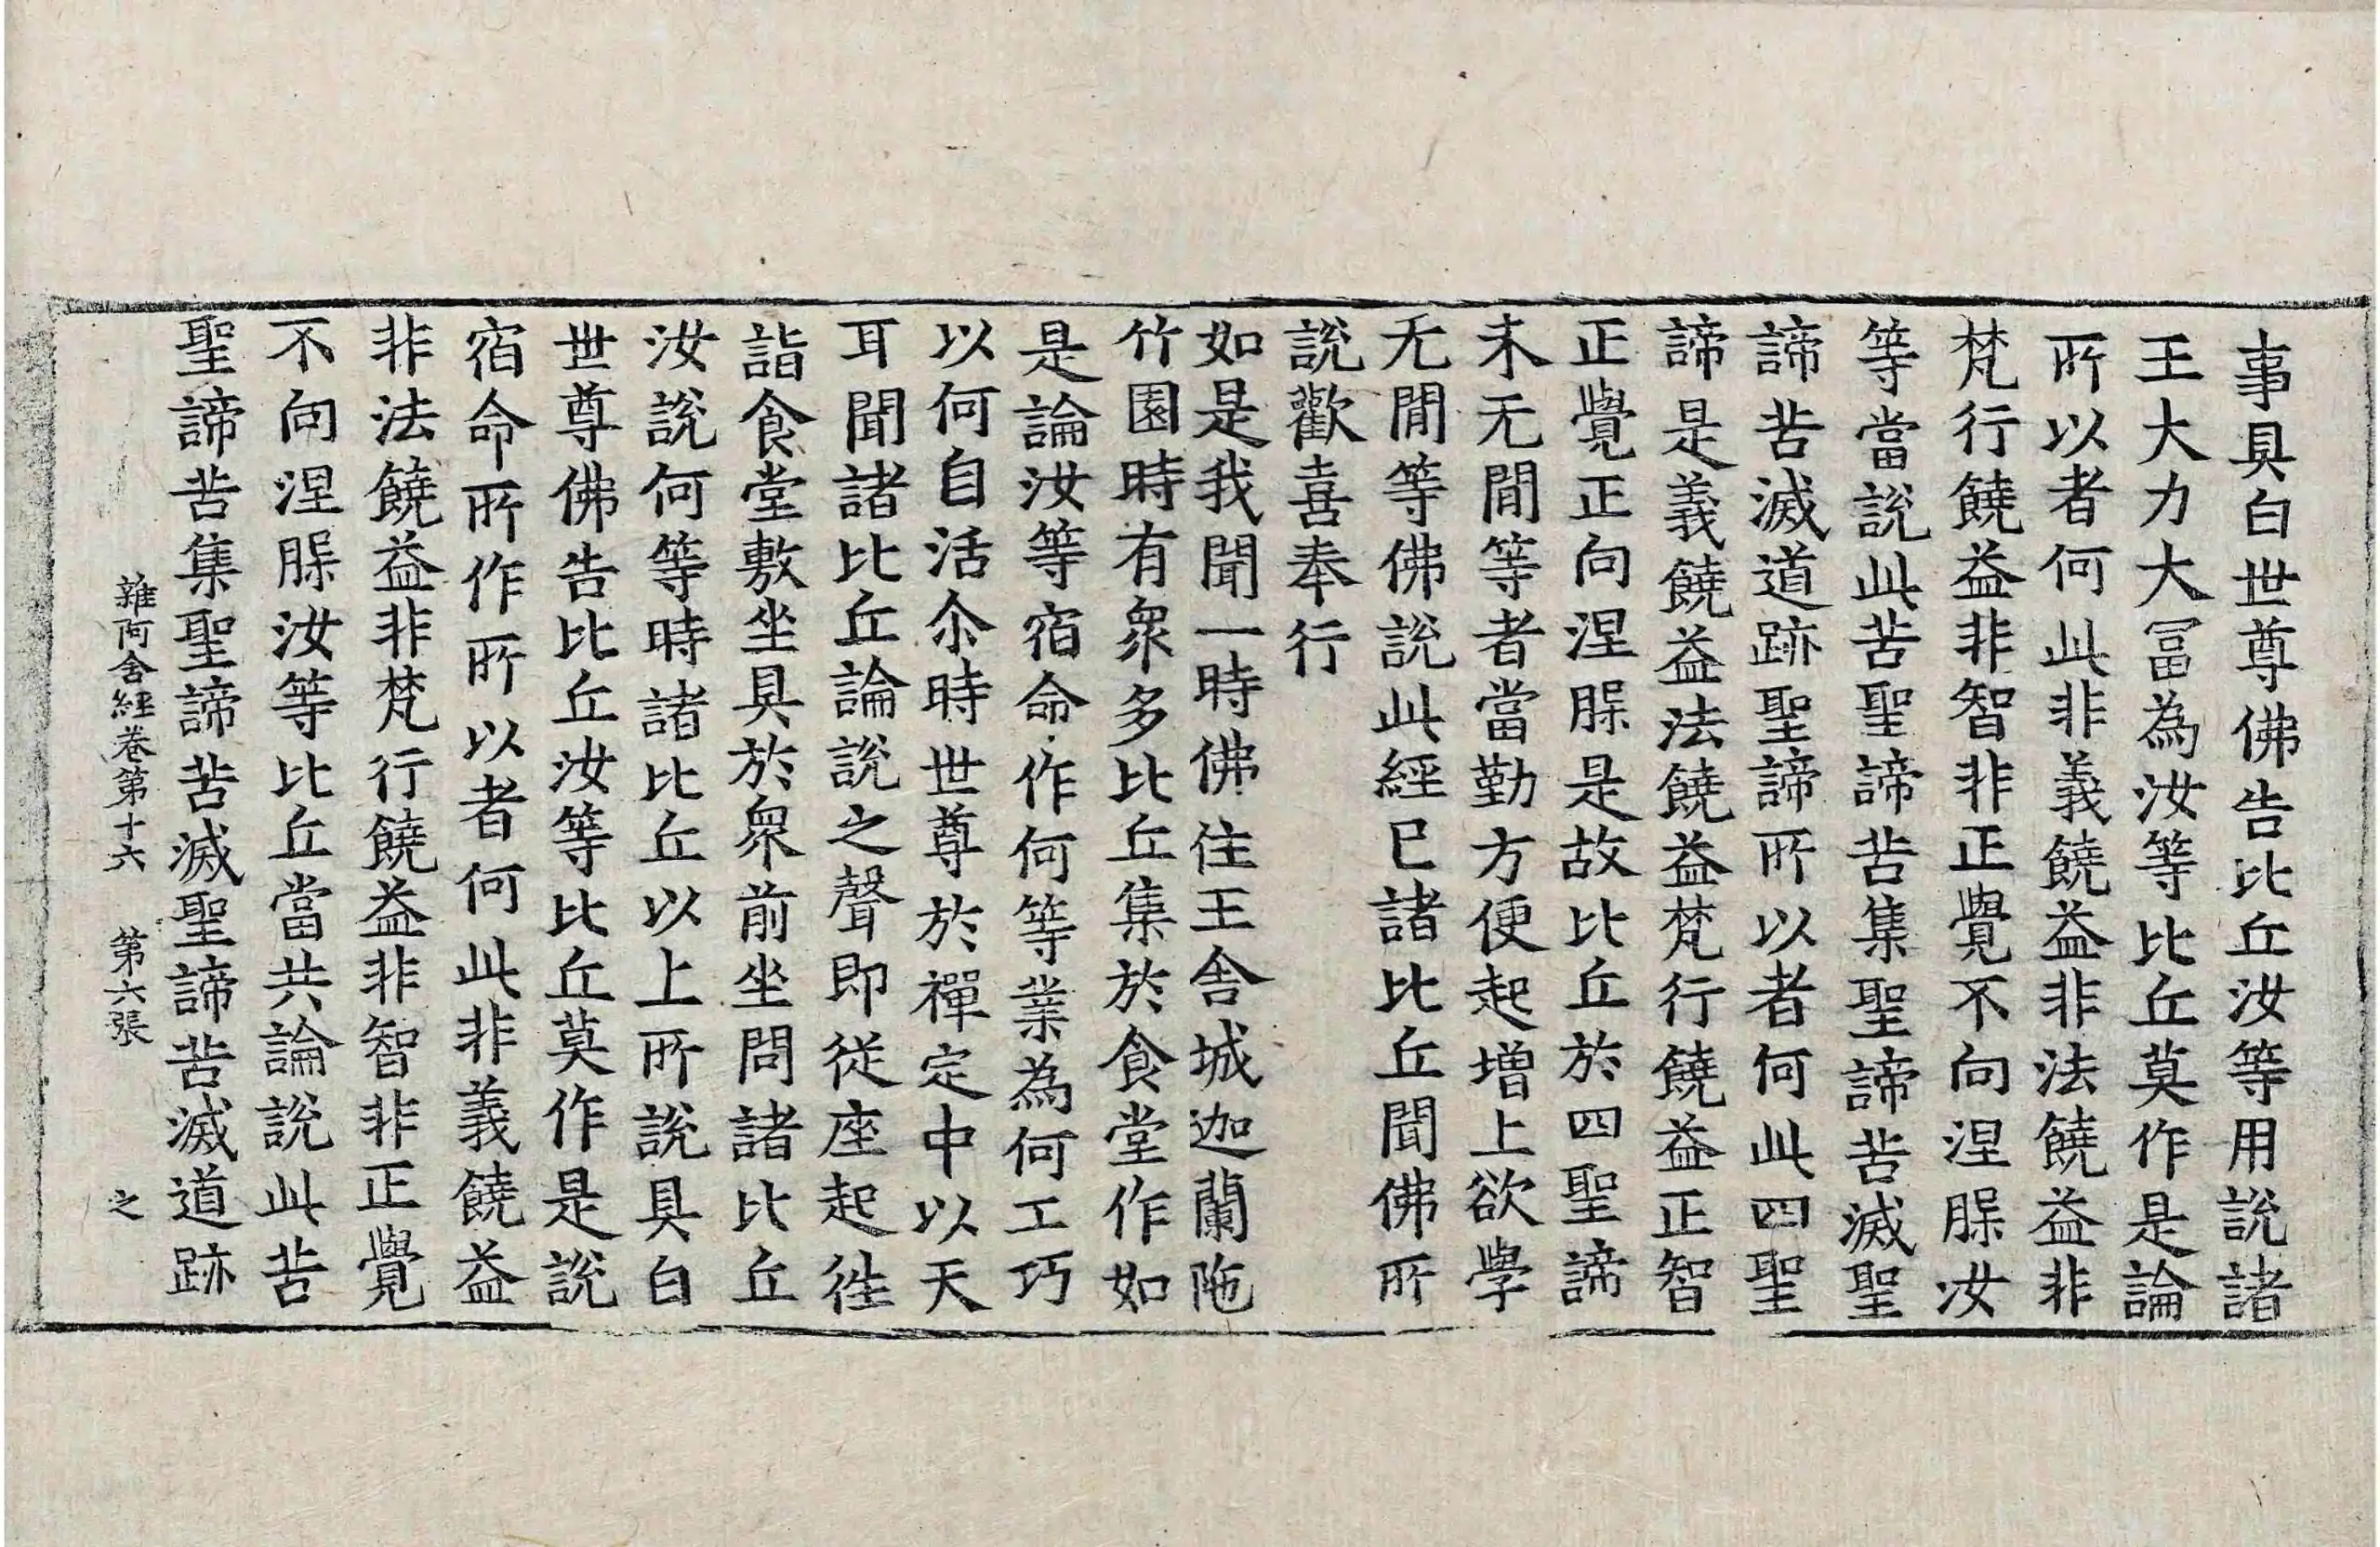 事具白世尊佛告比丘汝等用說諸
王大力大冨為汝等比丘莫作是論
所以者何此非義饒益非法饒益非
梵行饒益非智非正覺不向涅脲汝
等當說此苦聖諦苦集聖諦苦滅聖
諦苦滅道跡聖諦所以者何此四聖
諦是義饒益法饒益梵行饒益正智
正覺正向涅脲是故比丘於四聖諦
未无閒等者當勤方便起增上欲學
无閒等佛說此經已諸比丘聞佛所
說歡喜奉行
如是我聞一時佛住王舍城迦蘭陁
竹園時有衆多比丘集於食堂作如
是論汝等宿命作何等業為何工巧
以何自活尒時世尊於禪定中以天
耳聞諸比丘論說之聲即從座起徃
詣食堂敷坐具於衆前坐問諸比丘
汝說何等時諸比丘以上所說具白
世尊佛告比丘汝等比丘莫作是說
宿命所作所以者何此非義饒益
非法饒益非梵行饒益非智非正覺
不向涅脲汝等比丘當共論說此苦
聖諦苦集聖諦苦滅聖諦苦滅道跡
雜阿含經卷第十六 第六張 之